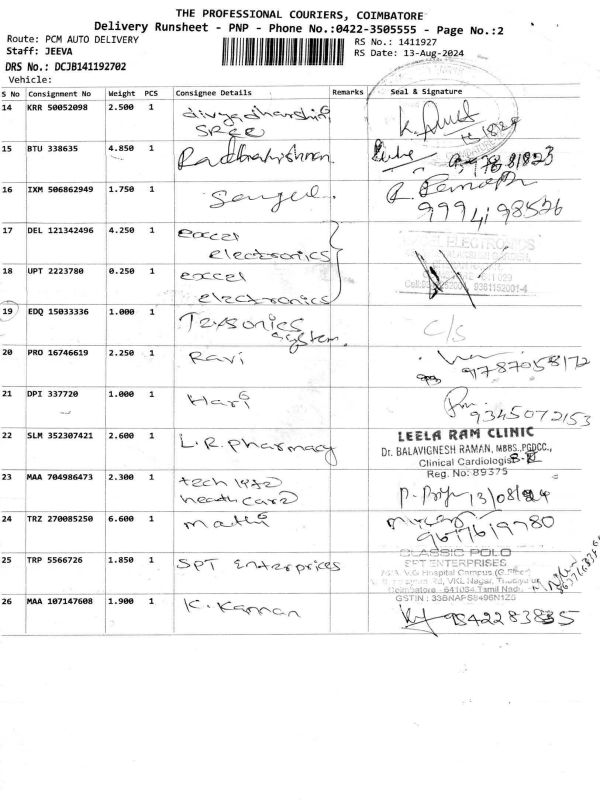 THE PROFESSIONAL COURIERS, COIMBATORE
Delivery Runsheet - PNP - Phone No.:0422-3505555 - Page No.:2
Route: PCM AUTO DELIVERY
RS No.: 1411927
Staff: JEEVA
RS Date: 13-Aug-2024
DRS No.: DCJB141192702
Vehicle:
S No Consignment No Weight PCS Consignee Details Remarks Seal & Signature
14 KRR 50052098 2.500 1 divyadharshini
SREE
15 BTU 338635 4.850 1 Radhakrishnan
16 IXM 506862949 1.750 1
9994198526
17 DEL 121342496 4.250 1 excel
electronics
18 UPT 2223780 0.250 1 excel
electronics
19 EDQ 15033336 1.000 1 Texsonics
System. C/S
20 PRO 16746619 2.250 1 Ravi
9787058172
21 DPI 337720 1.000 1 Hari
9345072153
22 SLM 352307421 2.600 1 L.R. Pharmacy
LEELA RAM CLINIC
Dr. BALAVIGNESH RAMAN, MBBS.,PGDCC.,
Clinical Cardiologist
Reg. No: 89375
23 MAA 704986473 2.300 1 tech life
heathcare 13/08/24
24 TRZ 270085250 6.600 1 mathi
9677619780
25 TRP 5566726 1.850 1 SPT Enterprices
CLASSIC POLO
SPT ENTERPRISES
Hospital Campus
VKL Nagar,
Coimbatore - 641034 Tamil Nadu
GSTIN : 33BNAPS8496N1Z5
26 MAA 107147608 1.900 1 K. Kannan
9842283835